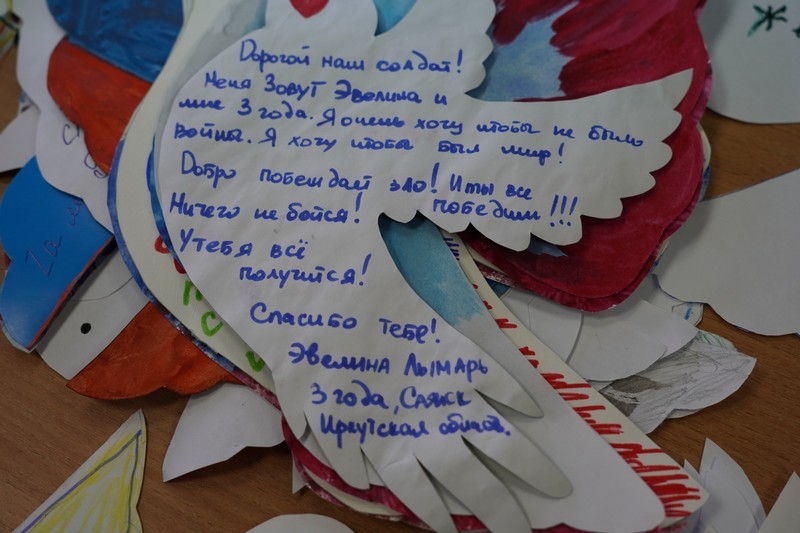 Дорогой наш солдат!
Меня Зовут Эвелина и
мне 3 года. Я очень хочу чтобы не было
войны. Я хочу чтобы был мир!
Добро побеждает зло! И ты все
победиш!!!
Ничего не бойся!
У тебя всё
получится!
Спасибо тебе!
Эвелина Лымарь
3 года, Саянск
Иркутская область.
За